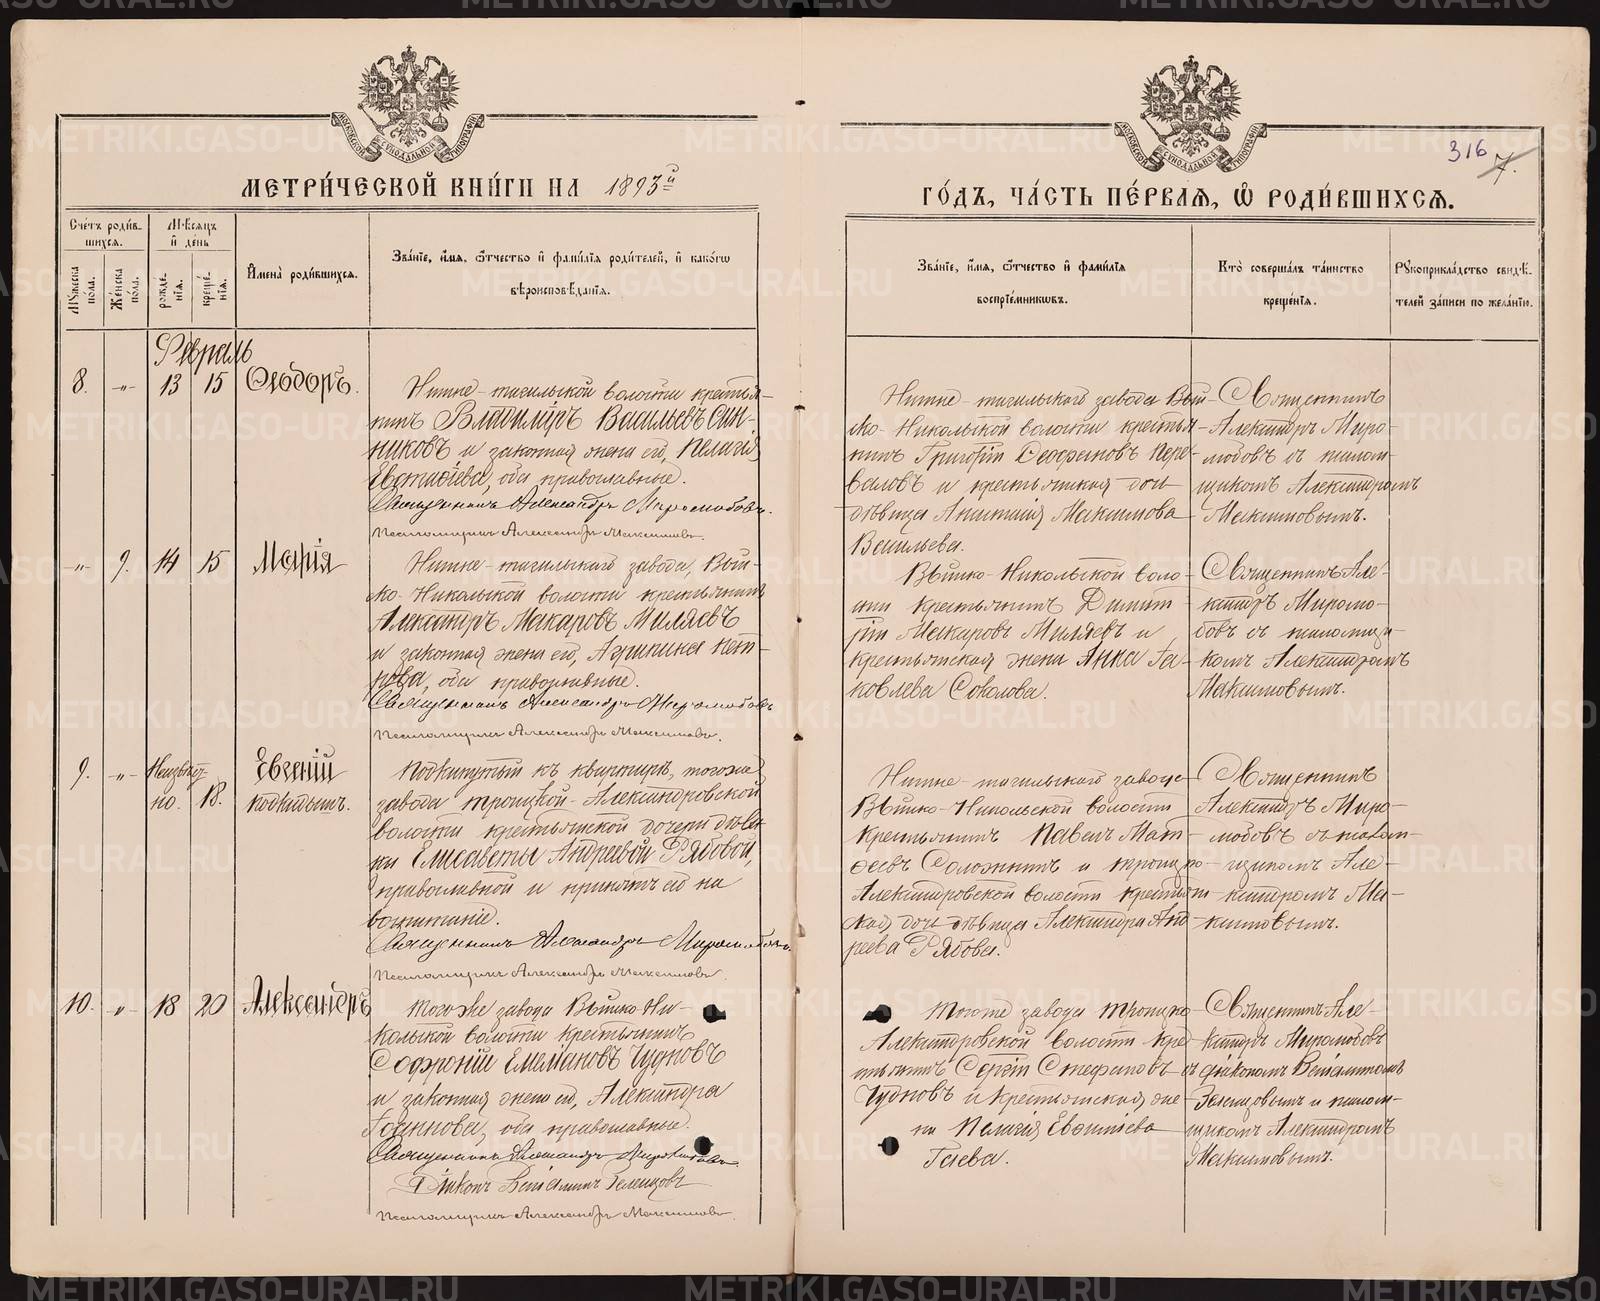 МЕТРИ́ЧЕСКОЙ КНИ́ГИ НА 1893й
ГО́ДЪ, ЧА́СТЬ ПЕ́РВАЯ, Ѽ РОДИ́ВШИХСЯ.
316 7.
Сче́тъ роди́в-
шихся.
Мѣсяцъ
и де́нь
Му́жеска
по́ла.
Же́нска
по́ла.
рожде-
нія.
креще́-
нія.
Имена̀ роди́вшихся.
Зва́ніе, и́мя, ѻ́тчество и фами́лія роди́телей, и како́гѡ
вѣроисповѣ́данія.
Зва́ніе, и́мя, ѻ́тчество и фами́лія
воспріе́мниковъ.
Кто̀ соверша́лъ та́инство
креще́нія.
Рукоприкла́дство свидѣ́-
телей за́писи по жела́нію.
Февраль
8. -"- 13 15 Ѳеодоръ.
Нижне-тагильской волости крестья-
нинъ Владиміръ Васильевъ Син-
никовъ и законная жена его, Пелагія
Евстаѳіева, оба православные.
Священникъ Александръ Миролюбовъ.
Псаломщикъ Александръ Максимовъ.
Нижне-тагильскаго завода Вый-
ско-Никольской волости крестья-
нинъ Григорій Ѳеофановъ Пере-
валовъ и крестьянская дочь
дѣвица Анастасія Максимова
Васильева.
Священникъ
Александръ Миро-
любовъ съ псалом-
щикомъ Александромъ
Максимовымъ.
-"- 9. 14 15 Марія
Нижне-тагильскаго завода, Вый-
ско-Никольской волости крестьянинъ
Александръ Макаровъ Миляевъ
и законная жена его, Агрипина Пет-
рова, оба православные.
Священникъ Александръ Миролюбовъ
Псаломщикъ Александръ Максимовъ.
Выйско-Никольской воло-
сти крестьянинъ Димит-
рій Макаровъ Миляевъ и
крестьянская жена Анна Іа-
ковлева Соколова.
Священникъ Але-
ксандръ Миролю-
бовъ съ псаломщи-
комъ Александромъ
Максимовымъ.
9. -"- Неизвѣст-
но. 18. Евгеній
подкидышъ.
Подкинутый къ квартирѣ, тогоже
завода Троицкой-Александровской
волости крестьянской дочери дѣви-
ки Елисаветы Андреевой Рябовой,
православной и принятъ ею на
воспитаніе.
Священникъ Александръ Миролюбовъ.
Псаломщикъ Александръ Максимовъ.
Нижне-тагильскаго завода
Выйско-Никольской волости
крестьянинъ Павелъ Мат-
ѳеевъ Соложнинъ и Троицко-
Александровской волости крестьян-
ская дочь дѣвица Александра Анд-
реева Рябова.
Священникъ
Александръ Миро-
любовъ съ псалом-
щикомъ Але-
ксандромъ Ма-
ксимовымъ.
10. -"- 18 20 Александръ
Тогоже завода Выйско-Ни-
кольской волости крестьянинъ
Софроній Емельяновъ Чудновъ
и законная жена его, Александра
Іоаннова, оба православные.
Священникъ Александръ Миролюбовъ.
Діаконъ Веніаминъ Зеленцовъ
Псаломщикъ Александръ Максимовъ.
Тогоже завода Троицко-
Александровской волости кре-
стьянинъ Сергій Стефановъ
Чудновъ и крестьянская же-
на Пелагія Евстаѳіева
Гаева.
Священникъ Але-
ксандръ Миролюбовъ
съ діакономъ Веніаминомъ
Зеленцовымъ и псалом-
щикомъ Александромъ
Максимовымъ.